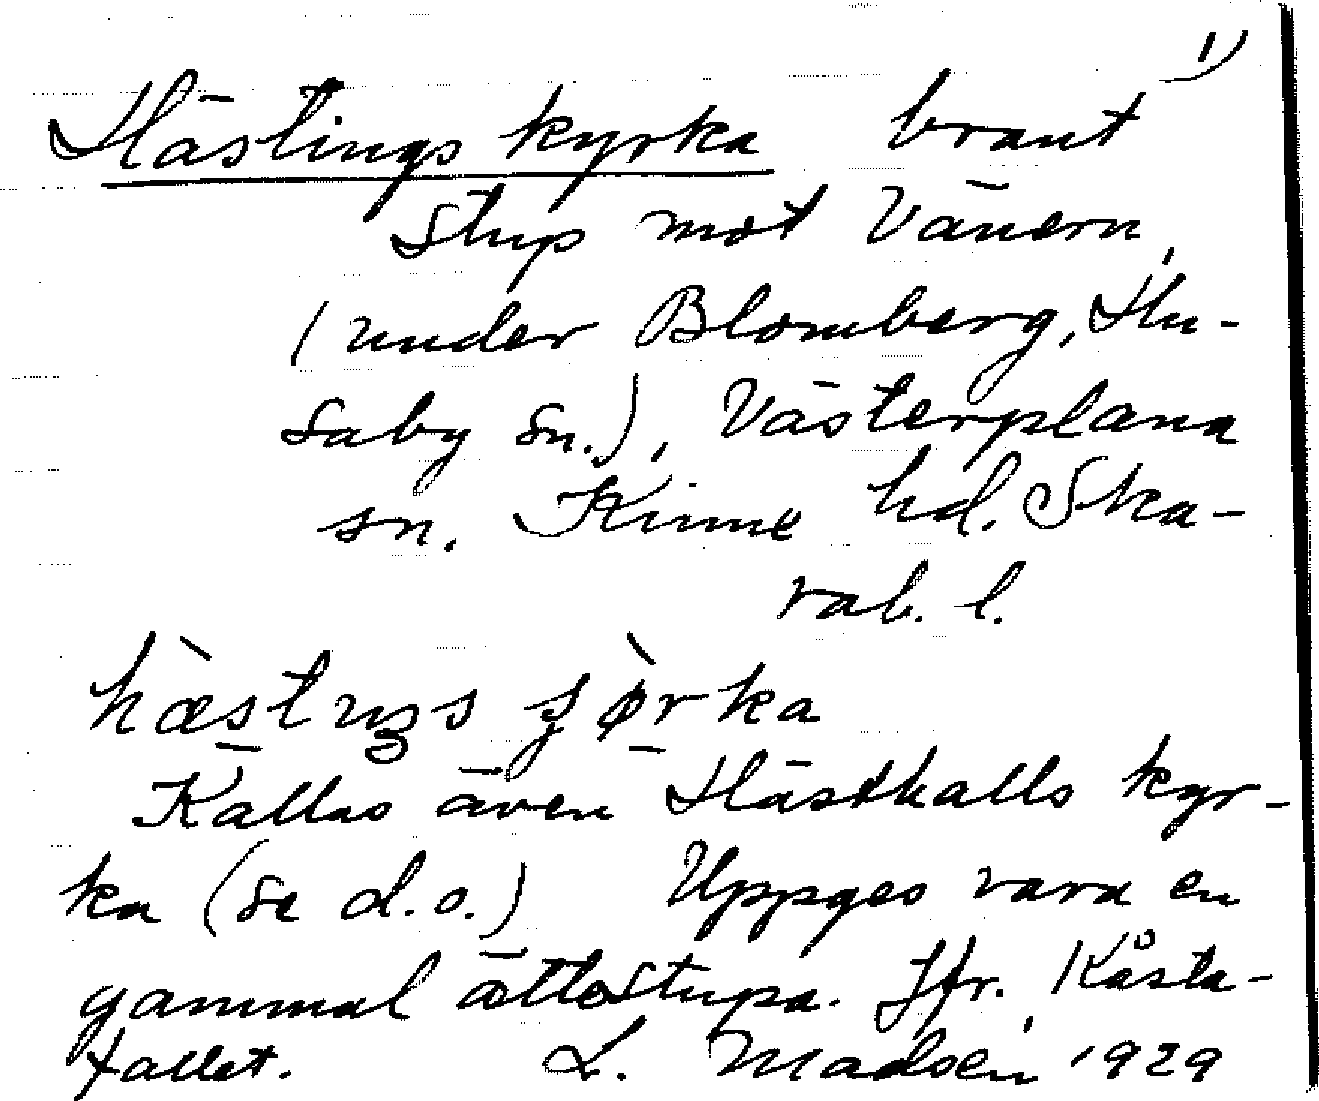 1)
Hästings kyrka brant
stup mot Vänern,
(under Blomberg, Hu-
saby sn.), Västerplana
sn. Kinne hd. Ska-
rab. l.
Kallas även Hästhalls kyr-
ka (se d.o.) Uppges vara en
gammal ättestupa. Jfr. Kåsta-
fallet. L. Madsén, 1929